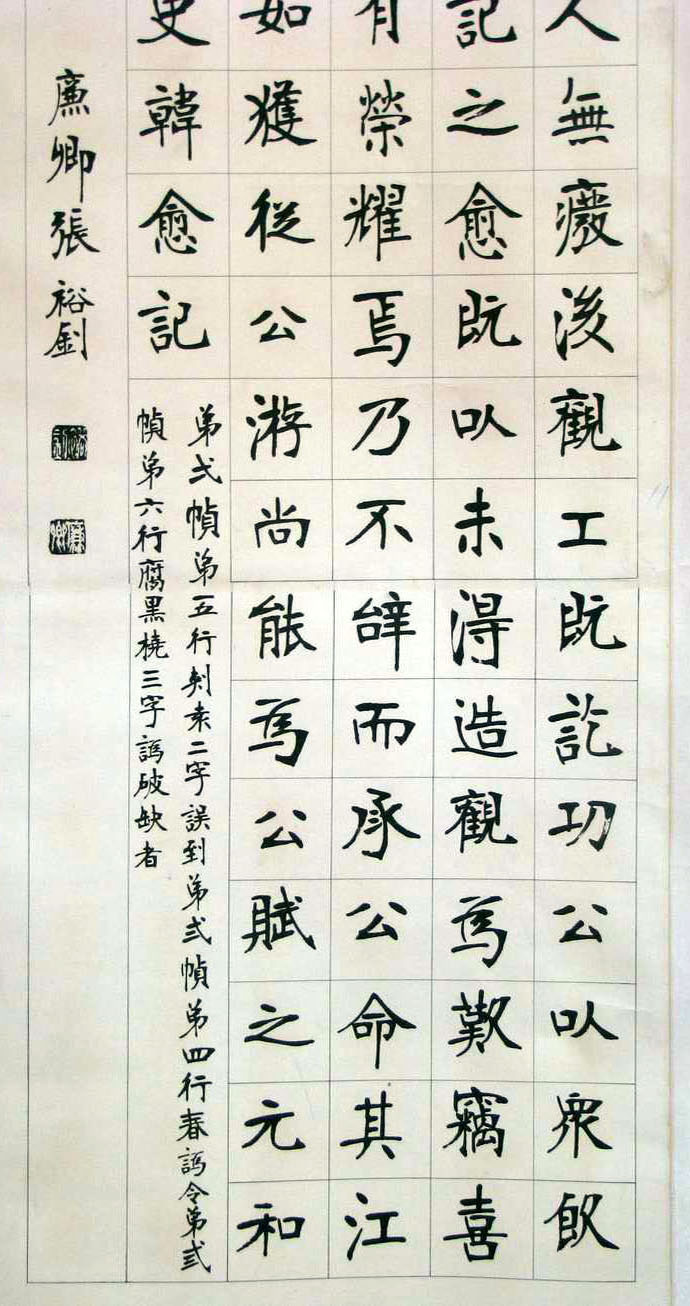 人無癈後觀工既訖功公以衆飲
記之愈既以未得造觀為歎竊喜
有榮耀焉乃不辭而承公命其江
如獲從公游尚能為公賦之元和
史韓愈記
弟弍幀弟五行刾袁二字誤到弟弍幀弟四行春譌令弟弎
幀弟六行腐黑橈三字譌破缺者
廉卿張裕釗